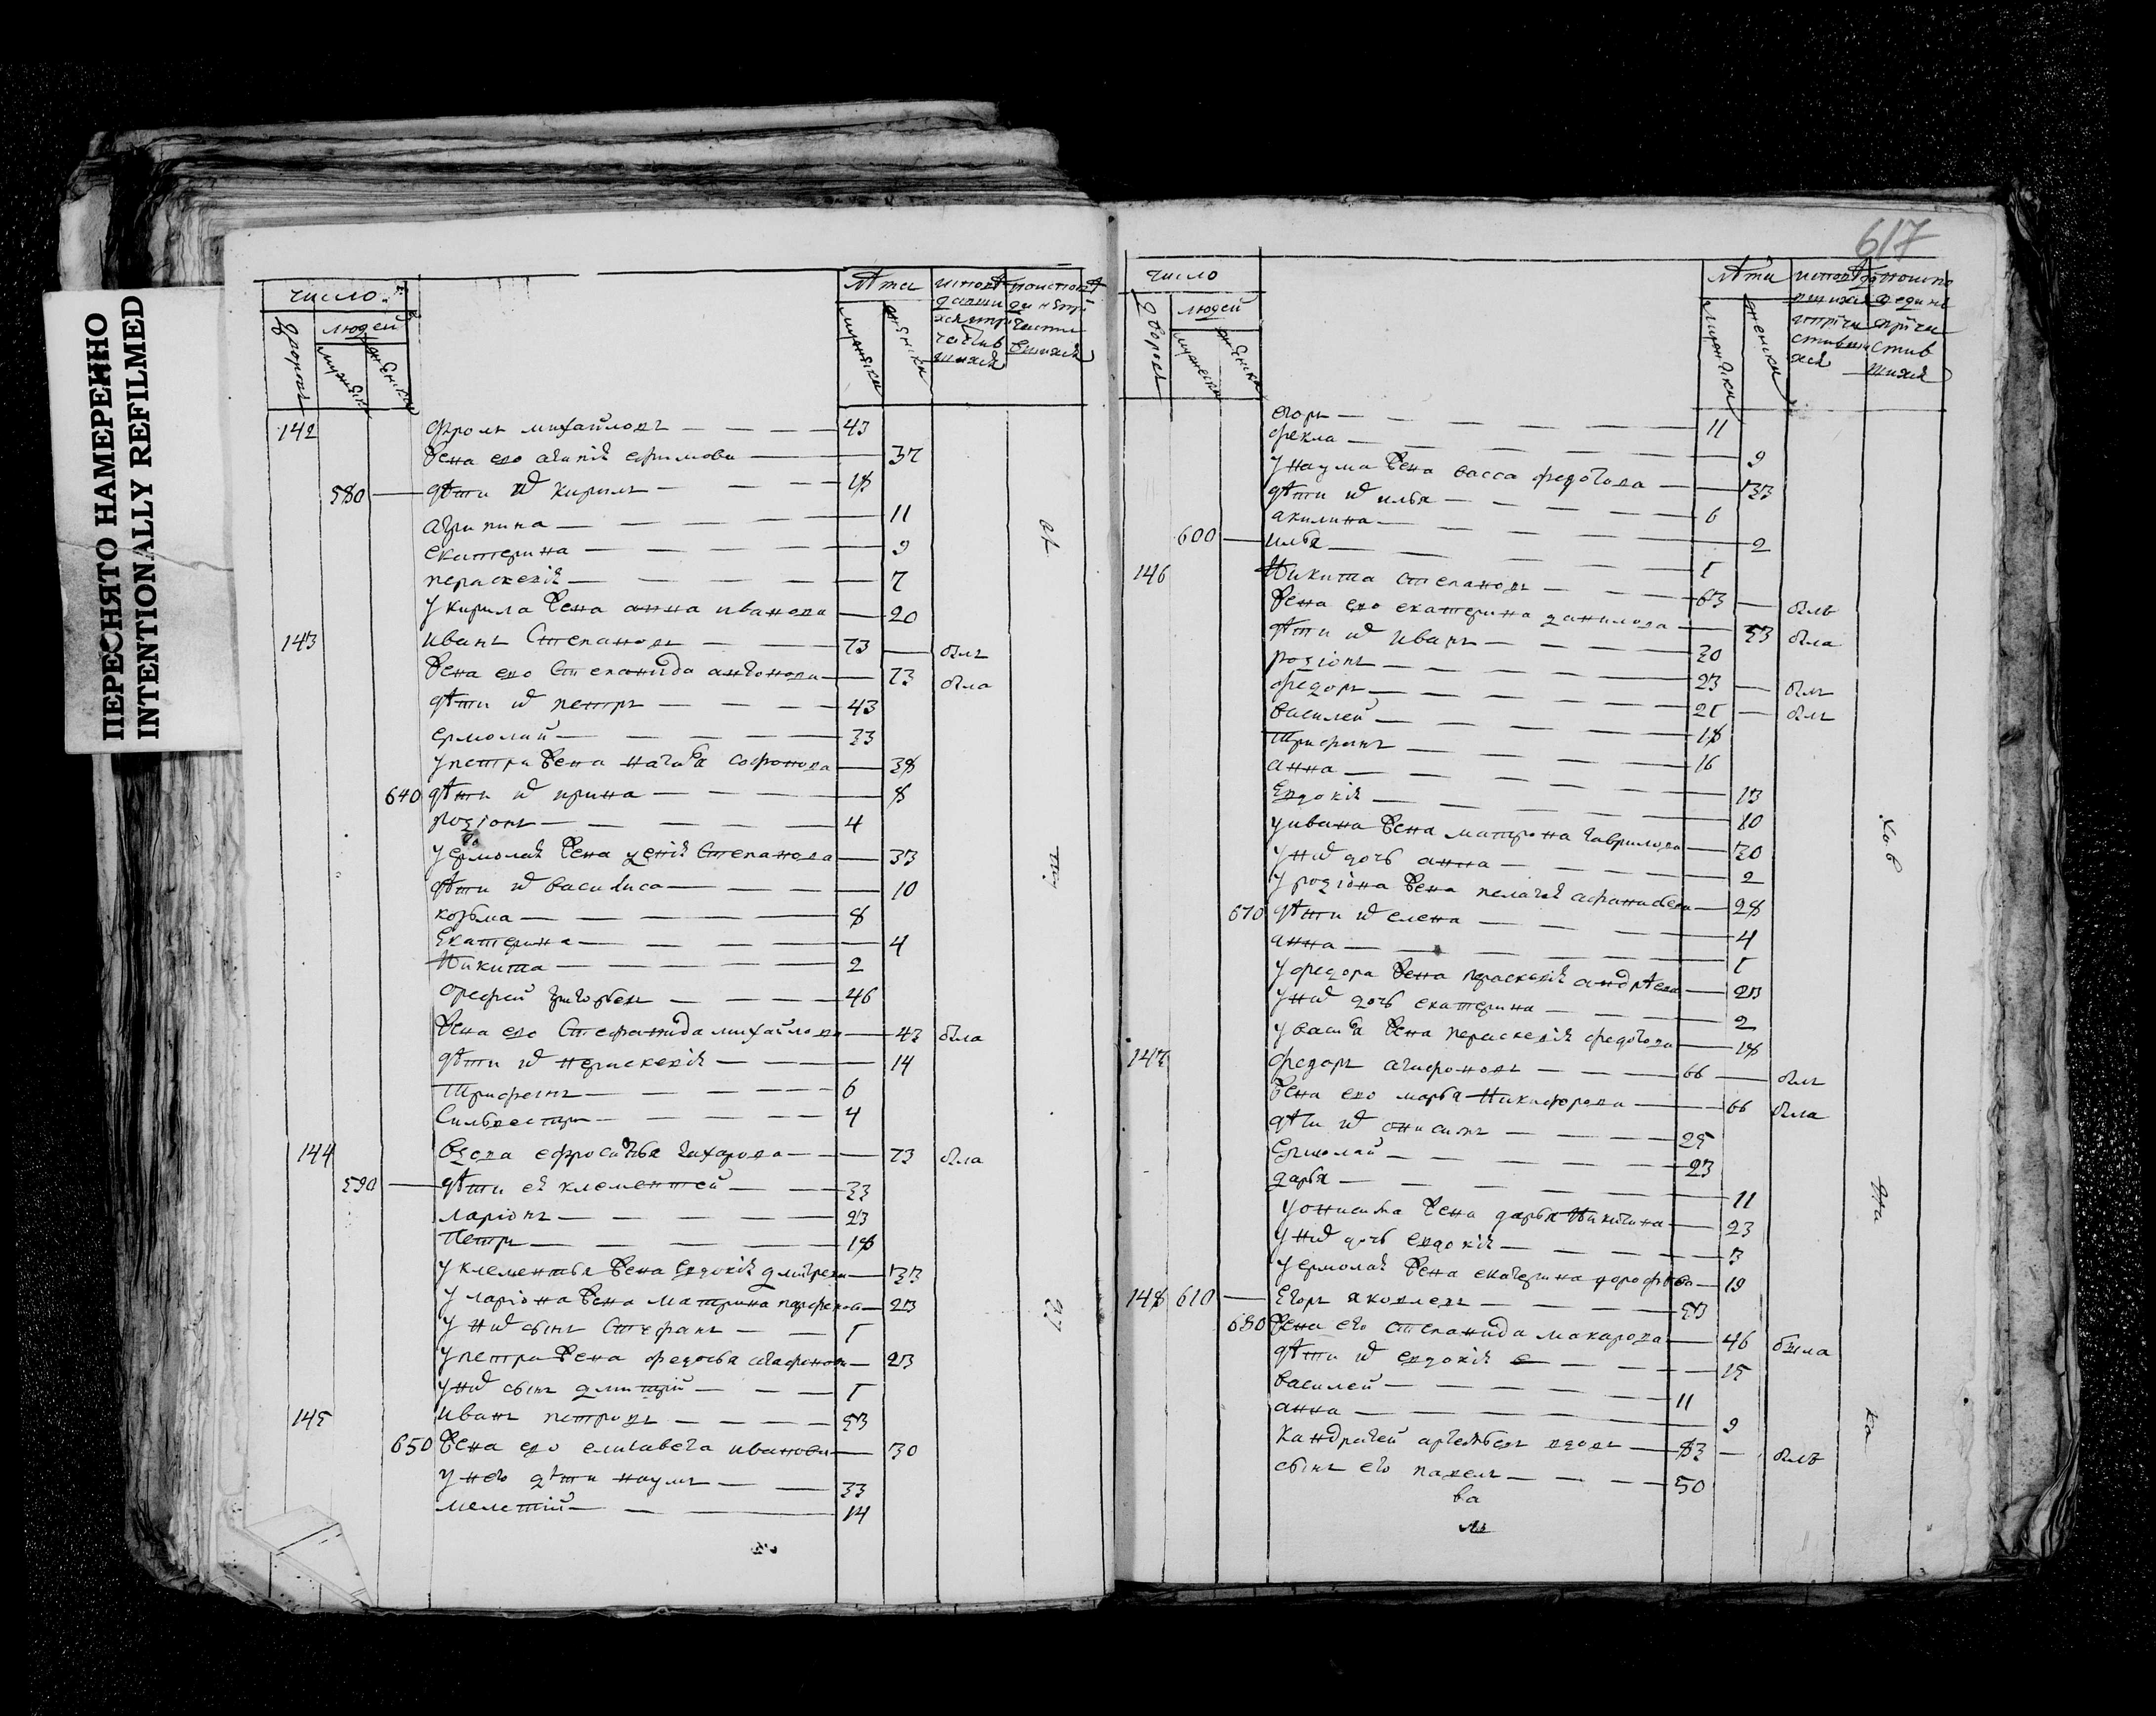 ПЕРЕСНЯТО НАМЕРЕННО
INTENTIONALLY REFILMED
число
дворовъ
людей
лѣта
142 фролъ михайловъ 43
Жена ево агапія ефимова 37
580 дѣти их кирилъ 18
агрипина 11
екатерина 9
параскевія 7
У кирила Жена анна иванова 20
143 иванъ Степановъ 73 былъ
Жена ево Степанида антонова 73 была
дѣти их петръ 43
ермолай 33
У петра Жена софонова 38
640 дѣти их ирина 8
родіонъ 4
У ермолая Жена Степанова 33
дѣти их василиса 10
козьма 8
Екатерина 4
Никита 2
григорьевъ 46
Жена ево Стефанида михайлова 43 была
дѣти их параскевія 14
Трифонъ 6
Сильвестръ 4
144 Вдова ефросинья захарова 73 была
590 дѣти ея клементей 33
ларіонъ 23
Петръ 18
У клементья Жена Евдокія дмитрева 33
У ларіона Жена Матрона 23
У них сынъ Стефанъ 1
У петра Жена федосья агафонова 23
У них сынъ дмитрій 1
145 иванъ петровъ 53
650 Жена ево елисавета иванова 30
У него дѣти наумъ 33
мелетій 14
617
число
дворовъ
людей
лѣта
егоръ 11
фекла 9
У наума Жена васса федотова 33
дѣти их илья 6
акилина 2
600 илья 1
146 Никита степановъ 63 былъ
Жена ево екатерина данилова 53 была
дѣти их иванъ 30
родіонъ 23 былъ
федоръ 21 былъ
василей 18
Трифонъ 16
анна 13
Евдокія 10
У ивана Жена матрона гаврилова 30
У них дочь анна 2
У родіона Жена пелагея афанасьева 28
670 дѣти их елена 4
анна 1
У федора Жена параскевія андрѣева 23
У них дочь екатерина 2
У василья Жена параскевія федотова 18
147 федоръ агафоновъ 66 былъ
Жена ево марья Никифорова 66 была
дѣти их онисимъ 25
Ермолай 23
дарья 11
У онисима Жена дарья Никитина 23
У них дочь евдокія 3
У ермолая Жена екатерина дорофѣева 19
148 610 Егоръ яковлевъ 53
680 Жена его степанида макарова 46 была
дѣти их евдокія 15
василей 11
анна 9
Кандратей артемьевъ вдовъ 83 былъ
сынъ его павелъ 50